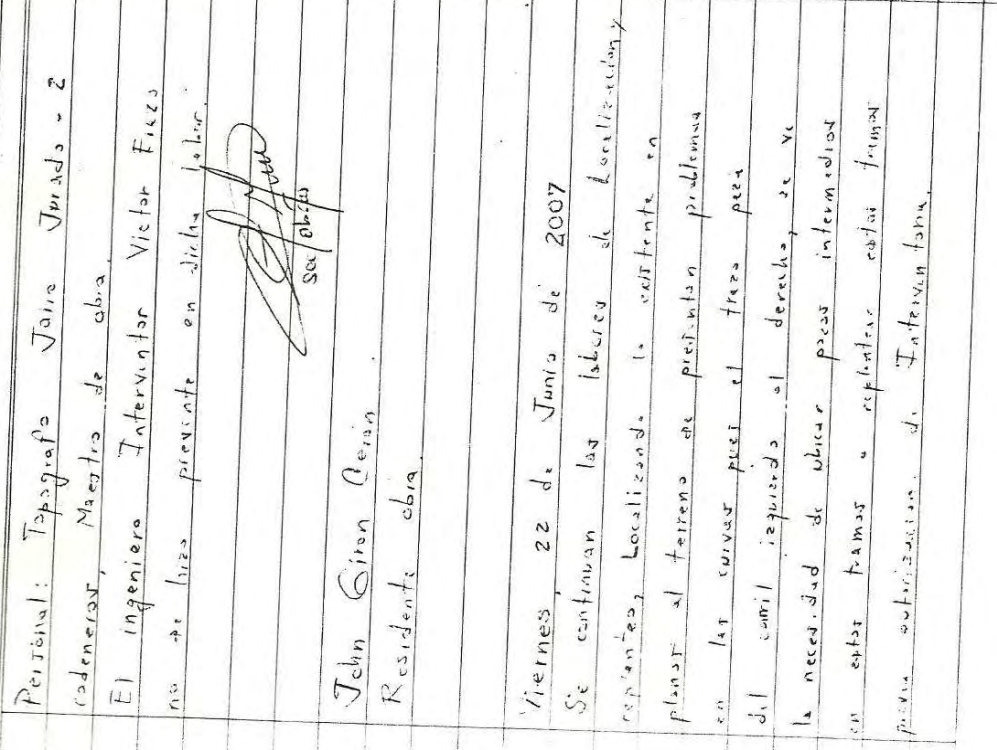 Personal: Topografo Jairo Jurado - 2
cadeneros, Maestro de obra.
El ingeniero Interventor Victor
no se hizo presente en dicha labor.
John Giron Ceron
Residente obra.
Viernes, 22 de Junio de 2007
Se continuan las labores de Localizacion y
replanteo, Localizando lo existente en
planos al terreno se presentan problemas
en las curvas pues el trazo para
del carril izquierdo al derecho, se ve
la necesidad de ubicar pocos intermedios
en estos tramos o replantear estos tramos
previa autorizacion de Interventoria.